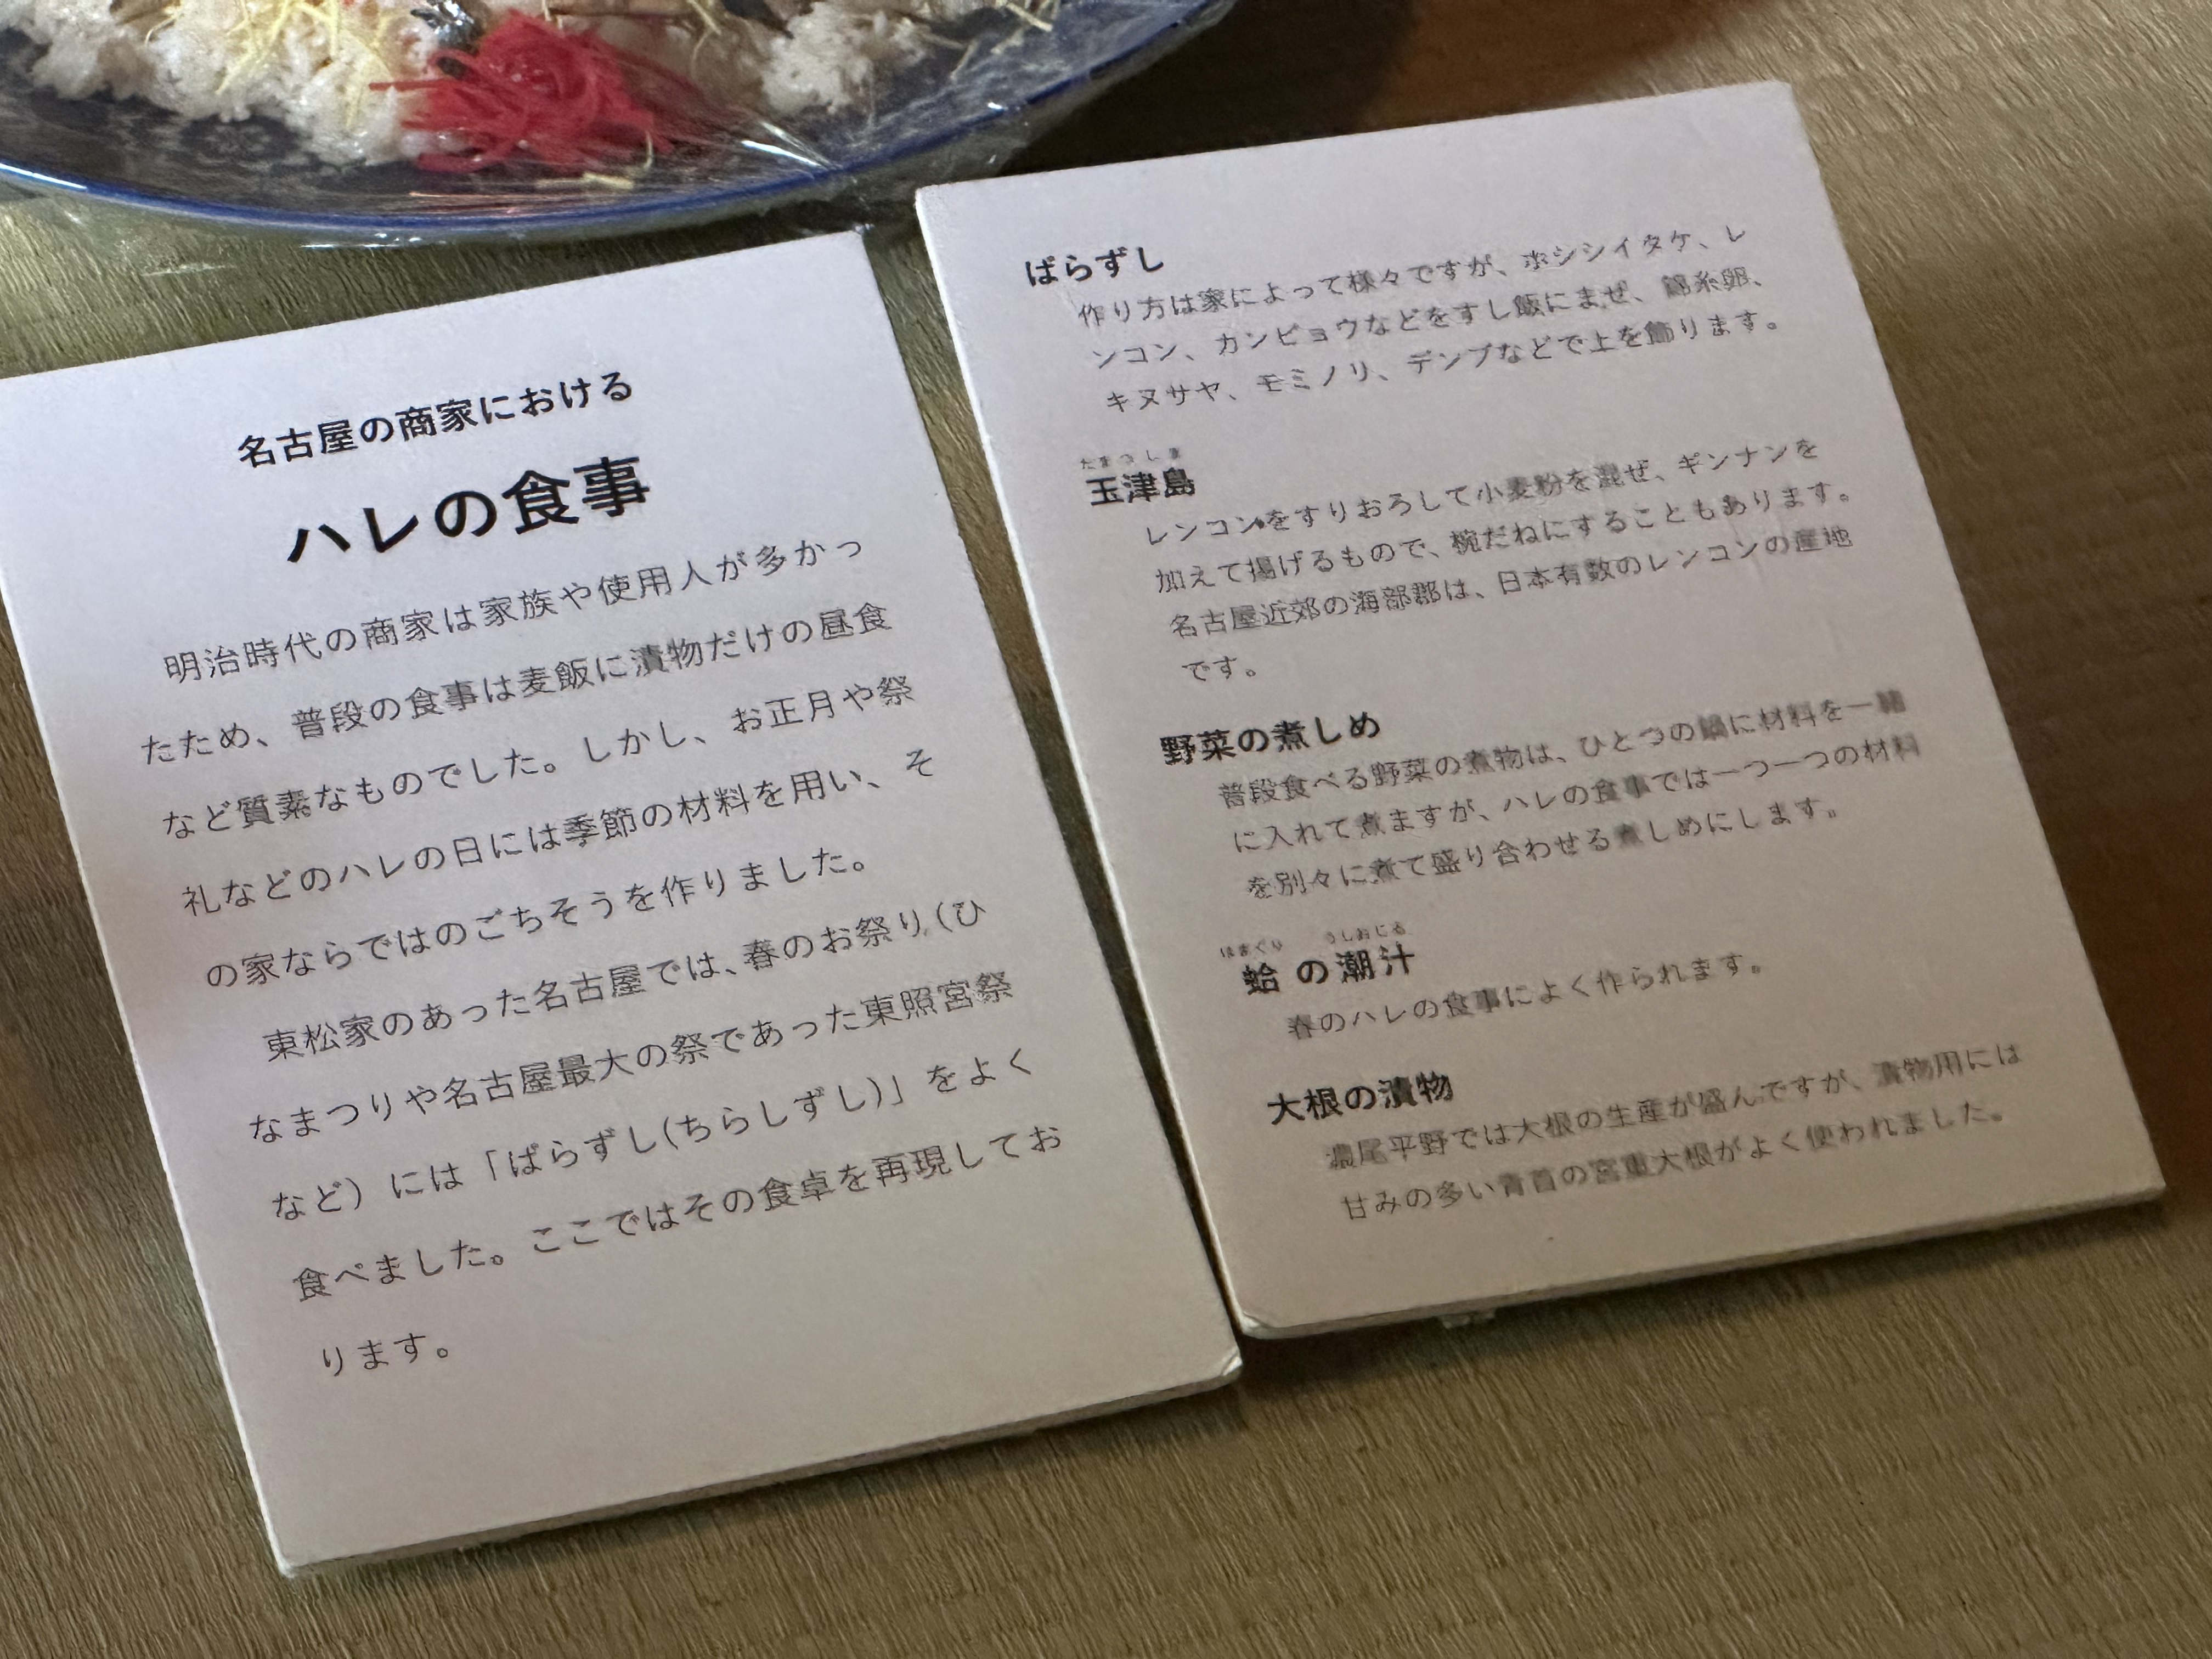 名古屋の商家における
ハレの食事
明治時代の商家は家族や使用人が多かっ
たため、普段の食事は麦飯に漬物だけの昼食
など質素なものでした。しかし、お正月や祭
礼などのハレの日には季節の材料を用い、そ
の家ならではのごちそうを作りました。
東松家のあった名古屋では、春のお祭り(ひ
なまつりや名古屋最大の祭であった東照宮祭
など)には「ばらずし(ちらしずし)」をよく
食べました。ここではその食卓を再現してお
ります。
ばらずし
作り方は家によって様々ですが、ホシシイタケ、レ
ンコン、カンピョウなどをすし飯にまぜ、錦糸卵、
キヌサヤ、モミノリ、デンブなどで上を飾ります。
たまつしま
玉津島
レンコンをすりおろして小麦粉を混ぜ、ギンナンを
加えて揚げるもので、椀だねにすることもあります。
名古屋近郊の海部郡は、日本有数のレンコンの産地
です。
野菜の煮しめ
普段食べる野菜の煮物は、ひとつの鍋に材料を一緒
に入れて煮ますが、ハレの食事では一つ一つの材料
を別々に煮て盛り合わせる煮しめにします。
はまぐり うしおじる
蛤の潮汁
春のハレの食事によく作られます。
大根の漬物
濃尾平野では大根の生産が盛んですが、漬物用には
甘みの多い青首の宮重大根がよく使われました。